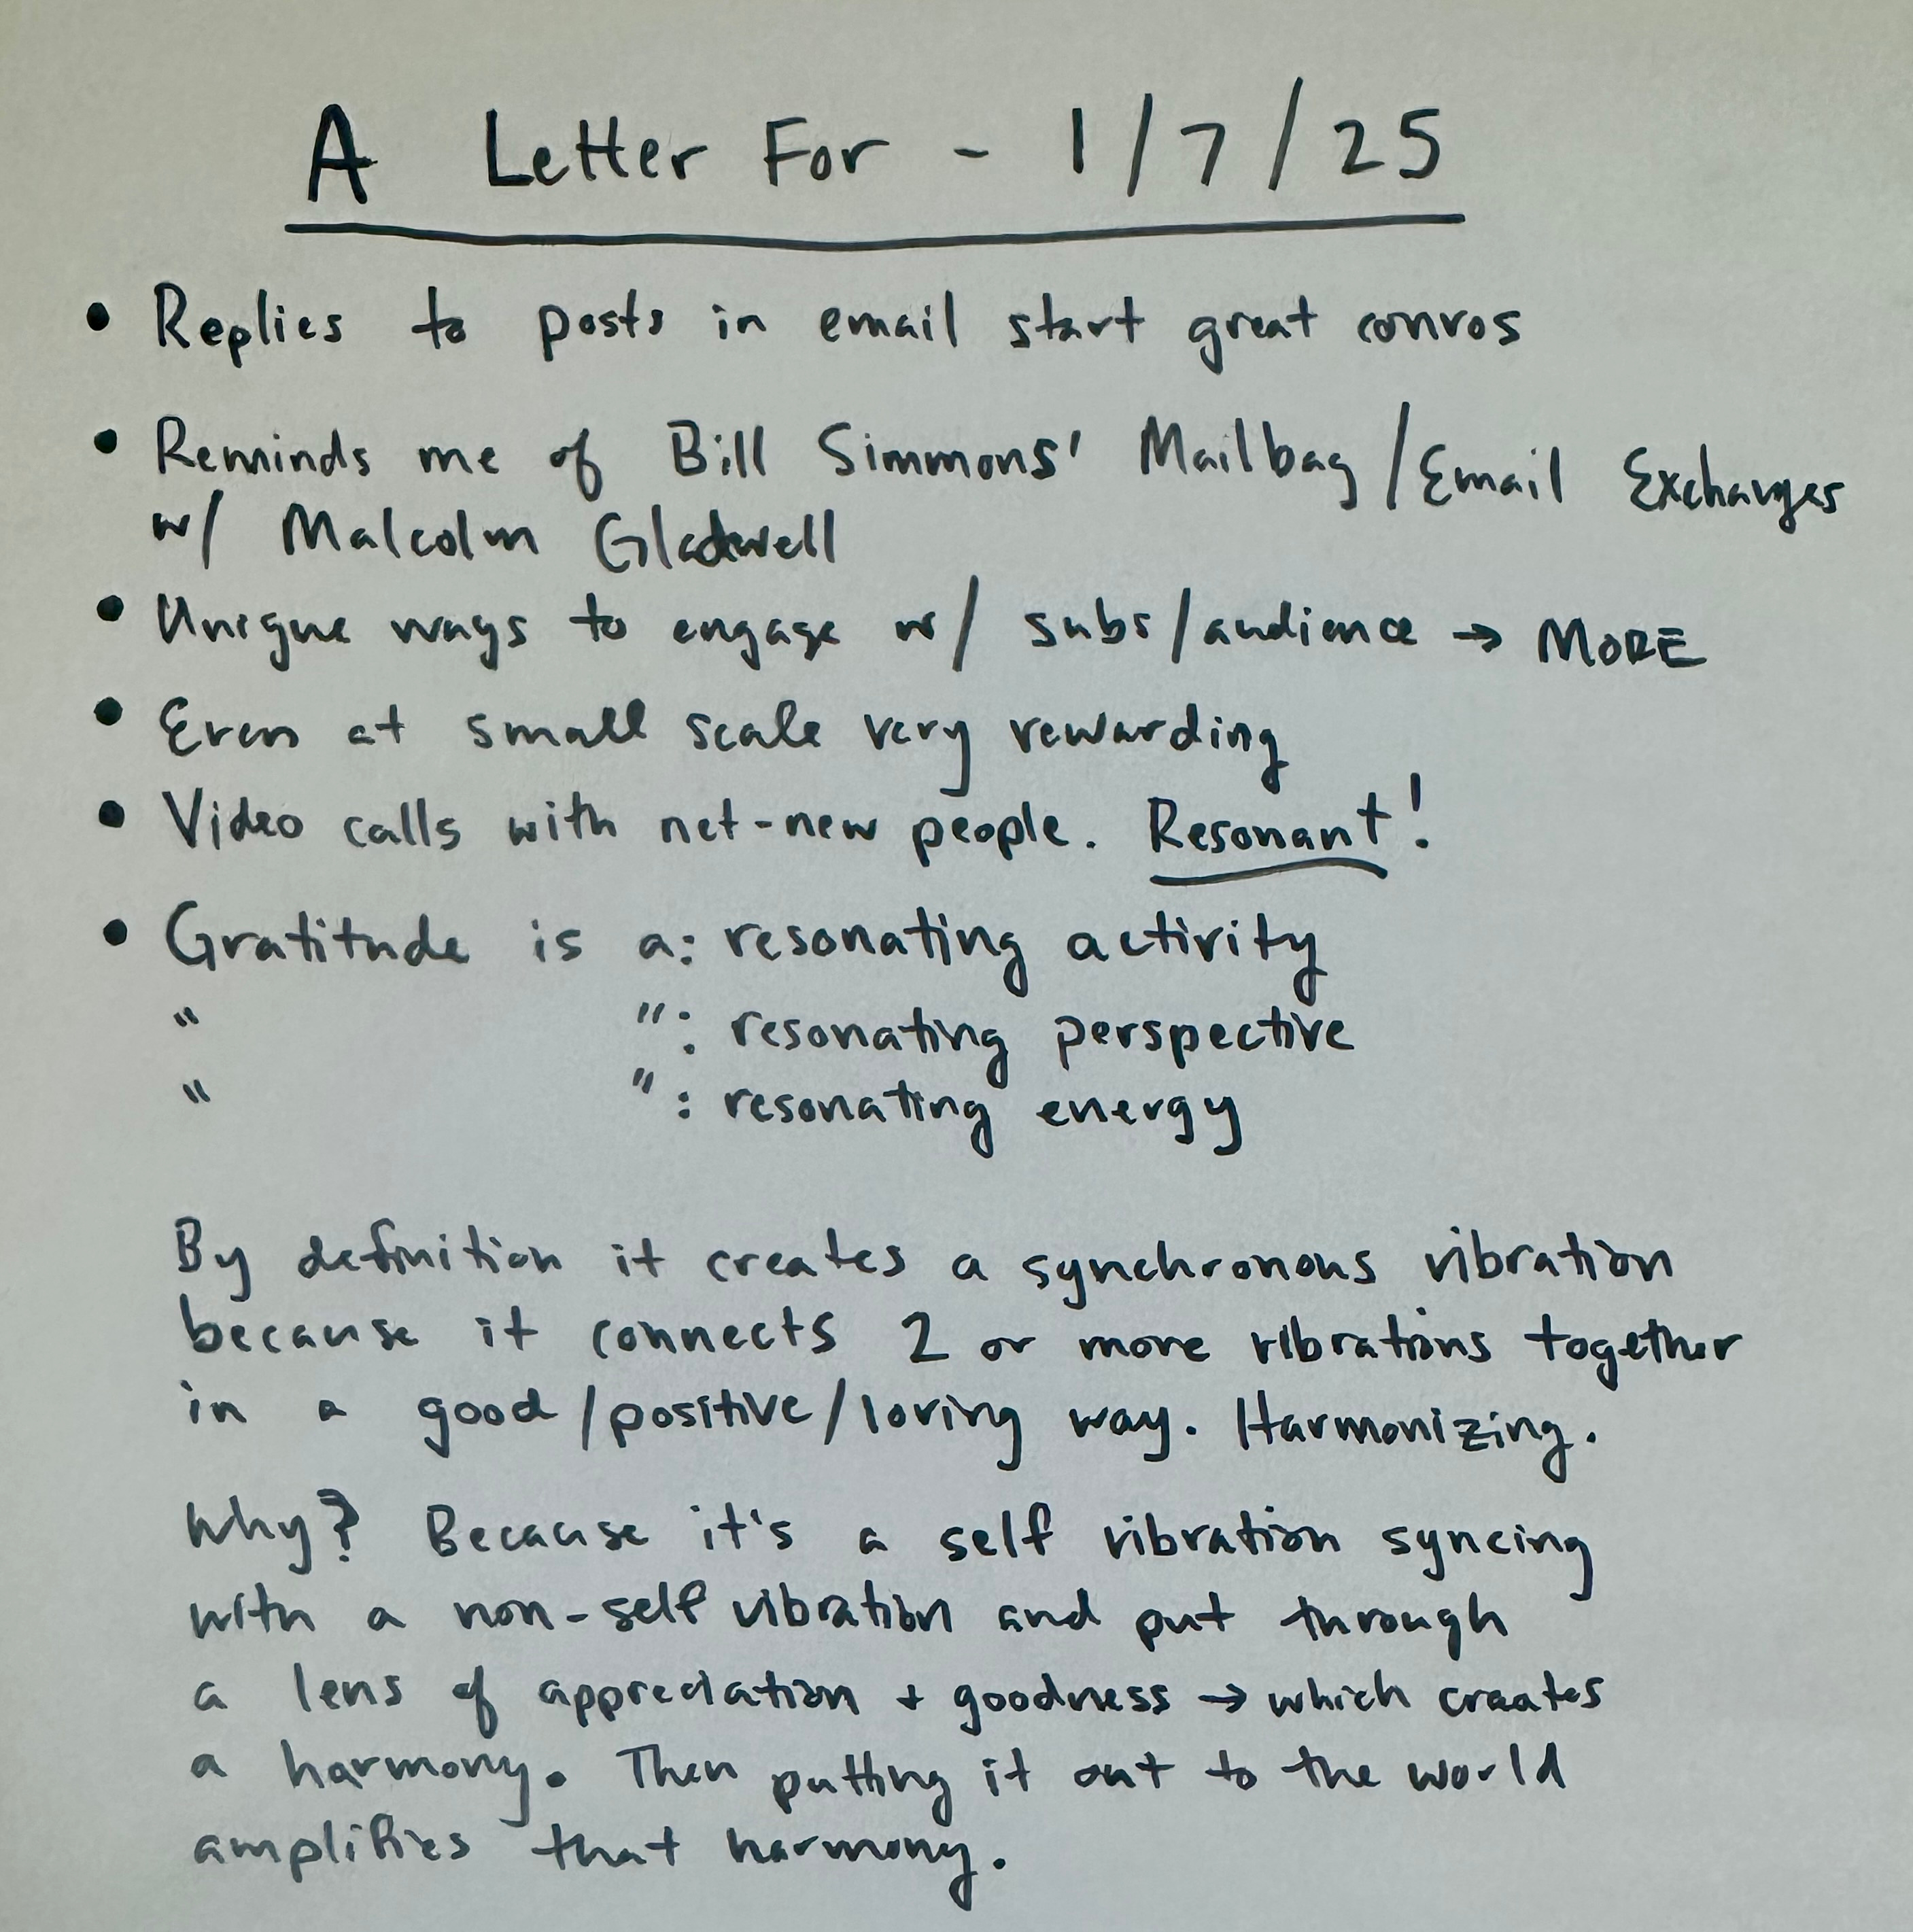 A Letter For - 1/7/25
• Replies to posts in email start great convos
• Reminds me of Bill Simmons' Mailbag/Email Exchanges
w/ Malcolm Gladwell
• Unique ways to engage w/ subs/audience → MORE
• Even at small scale very rewarding
• Video calls with net-new people. Resonant!
• Gratitude is a: resonating activity
" ": resonating perspective
" ": resonating energy
By definition it creates a synchronous vibration
because it connects 2 or more vibrations together
in a good/positive/loving way. Harmonizing.
Why? Because it's a self vibration syncing
with a non-self vibration and put through
a lens of appreciation + goodness → which creates
a harmony. Then putting it out to the world
amplifies that harmony.